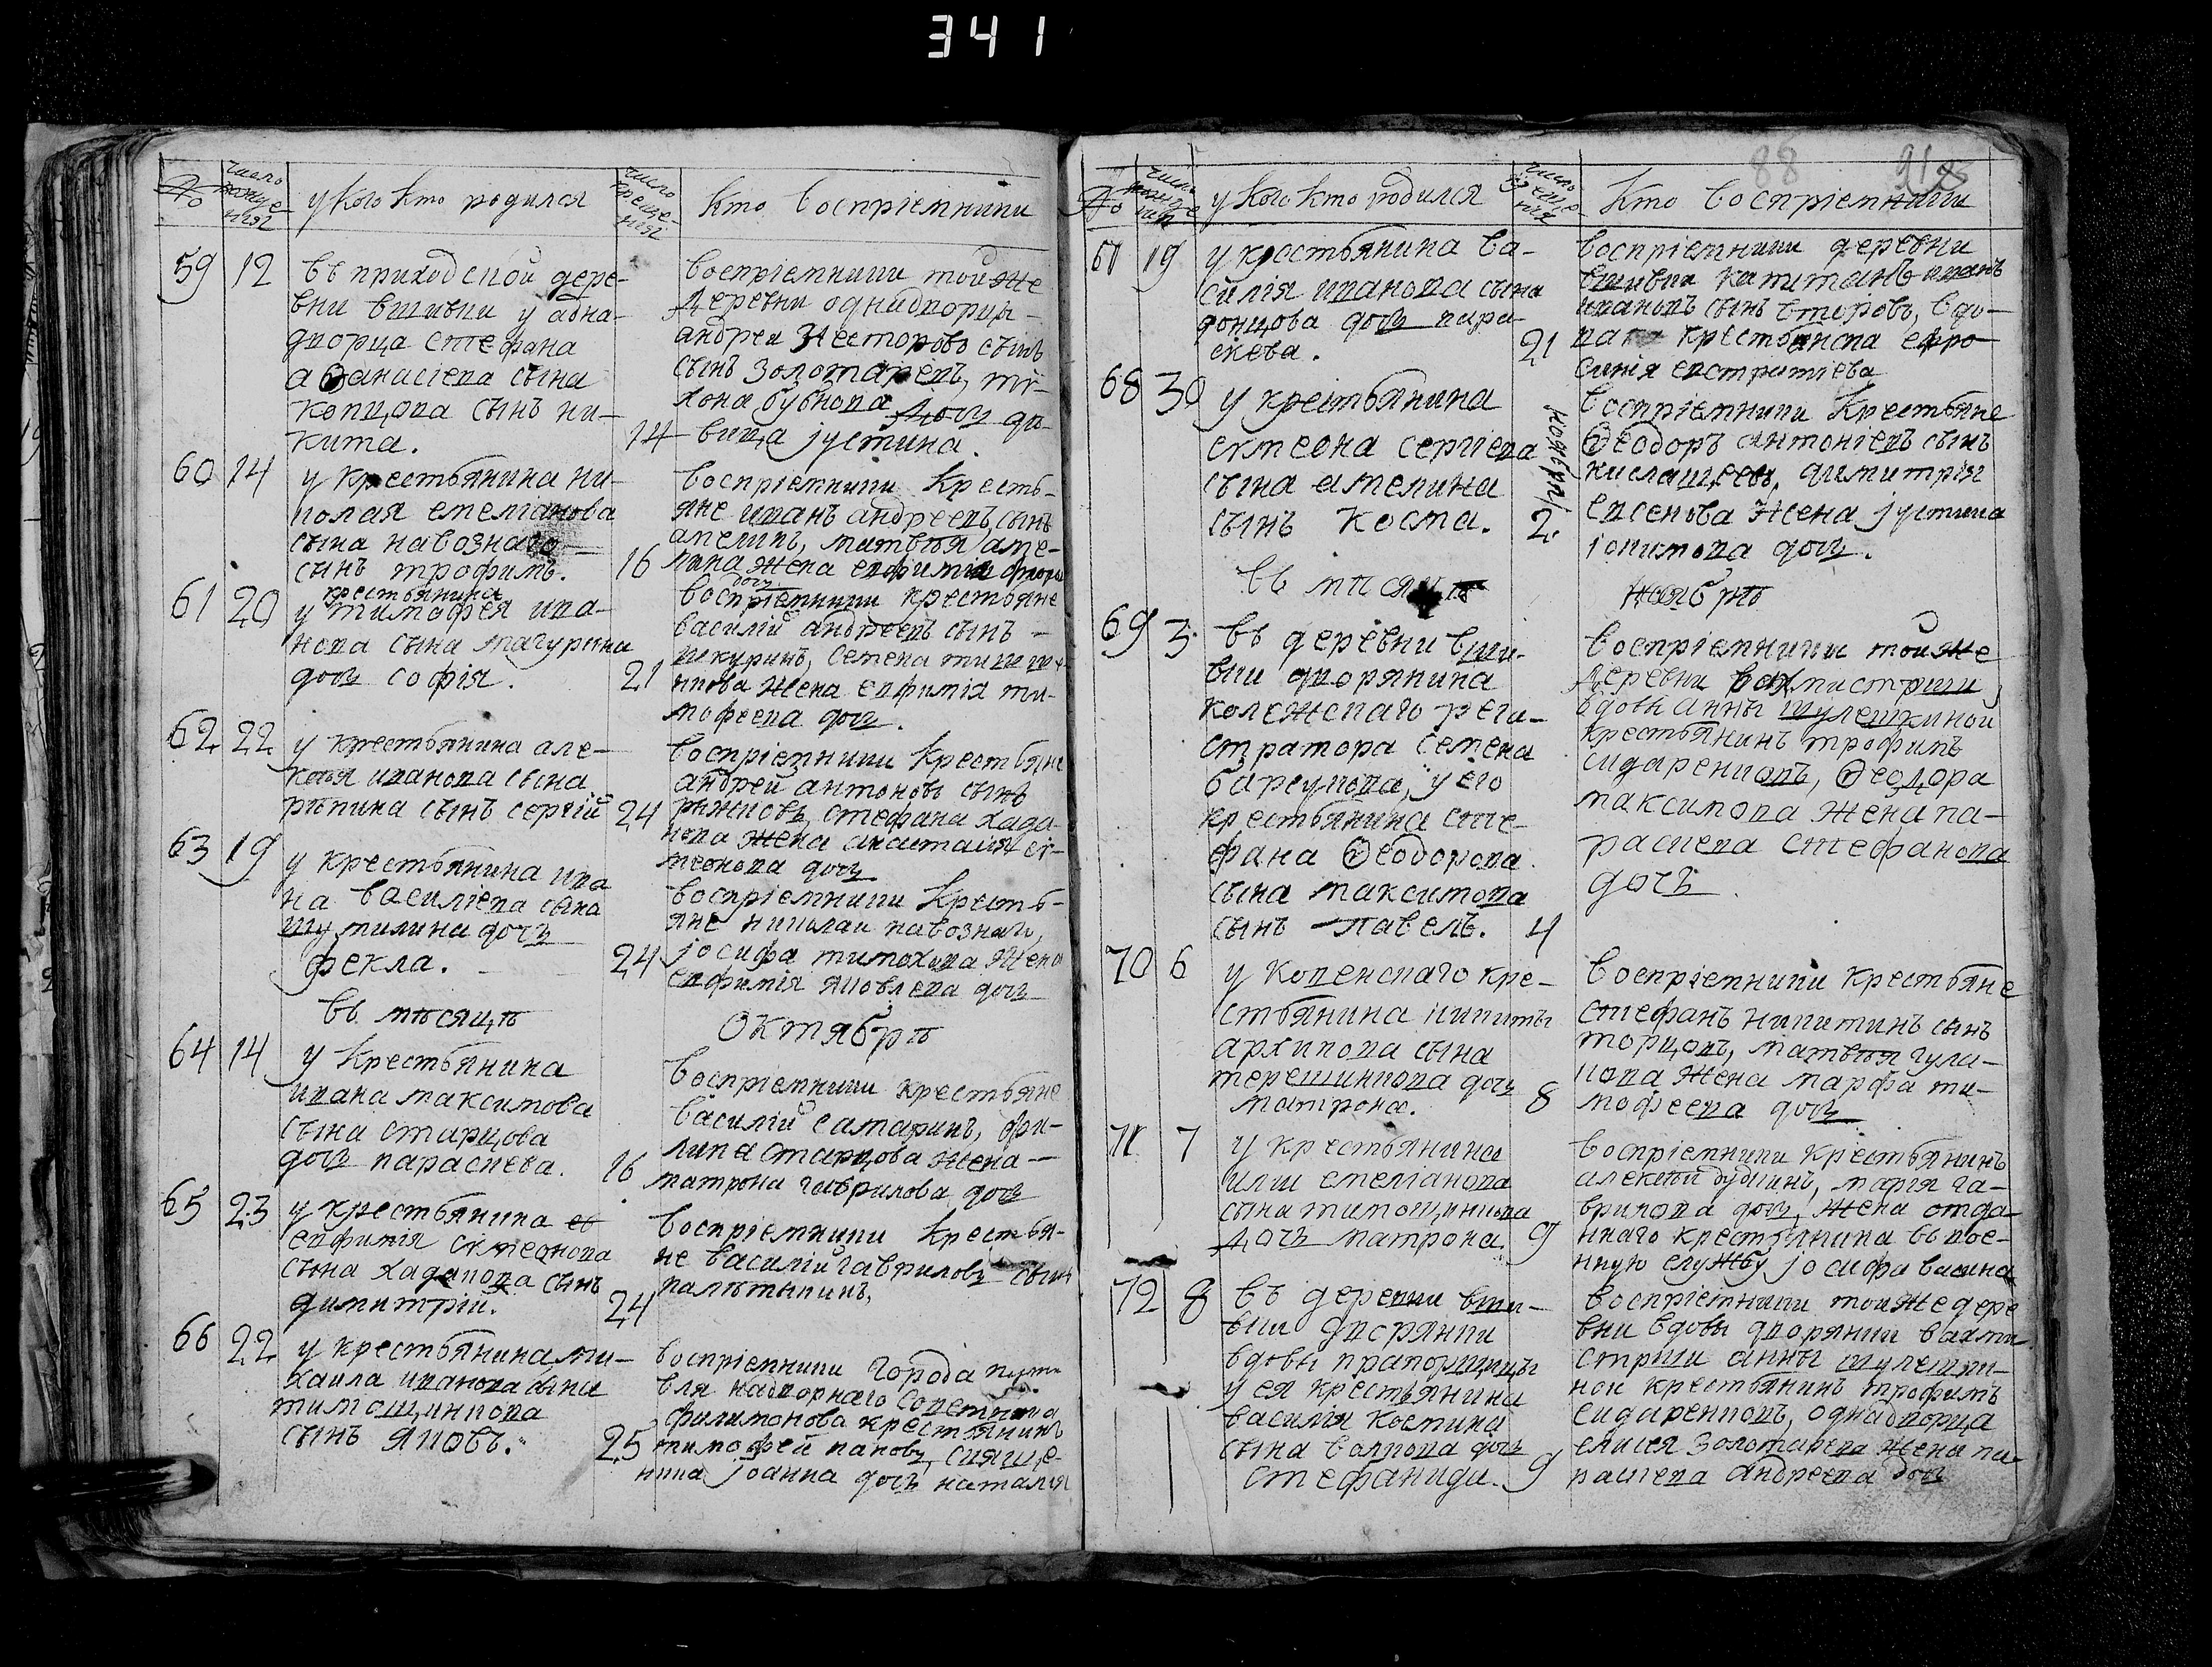 341
88
№
число рожде-
ния
у кого кто родился
число креще-
ния
кто воспріемники
59 12
въ приходской дере-
вни вшивки у одна-
дворца стефана
аѳанасіева сына
копцова сынъ ни-
кита.
14
воспріемники тойже
деревни однидворцы
андреи Несторовъ сынъ
сынъ золотаревъ, ти-
хона бубнова дочь дѣ-
вица јустина.
60 14
у крестьянина ни-
колая емеліанова
сына навознаго
сынъ трофимъ.
16
воспріемники кресть-
яне иванъ андреевъ сынъ
апелинъ, матвѣя апе-
лина жена евфимія
дочь
61 20
крестьянина
у тимофея ива-
нова сына мачурина
дочь софія.
21
воспріемники крестьяне
василій андреевъ сынъ
шкуринъ, семена
жена евфимія ти-
мофеева дочь.
62 22
у крестьянина але-
ксѣя иванова сына
рѣпина сынъ сергій
24
воспріемники крестьяне
андрей антоновъ сынъ
рыжковъ, стефана хада-
кова жена анастасія си-
меонова дочь
63 19
у крестьянина ива
на василіева сына
шутилина дочь
фекла.
24
воспріемники кресть-
яне николаи навознаго,
јосифа тимохина жена
евфимія яковлева дочь
въ мѣсяцѣ
октябрѣ
64 14
у крестьянина
ивана максимова
сына старцова
дочь параскева.
16
воспріемники крестьяне
василій самаринъ, фи-
липа старцова жена
матрона гаврилова дочь
65 23
у крестьянина ев
евфимія симеонова
сына хадакова сынъ
димитрій.
24
воспріемники крестья-
не василій гавриловъ сынъ
палѣтыкинъ,
66 22
у крестьянина ми-
хаила иванова сына
тимощинкова
сынъ яковъ.
25
воспріемники города пути
вля надворнаго советника
филимонова крестьянинъ
тимофей пановъ, свяще-
ника јоанна дочь наталія
№
число рожде
ния
у кого кто родился
число креще
ния
кто воспріемники
67 19
у крестьянина ва-
силія иванова сына
донцова дочь пара-
скева.
21
воспріемники деревни
вшивки капитанъ иванъ
ивановъ сынъ вдо-
ва крестьянска ефро-
синія евстратіева
68 30
у крестьянина
симеона сергіева
сына амелина
сынъ косма.
ноября
2.
воспріемники крестьяне
ѳеодоръ антоніевъ сынъ
кислащевъ, димитрія
евсенова жена јустина
іонимова дочь.
въ мѣсяцѣ
ноябрѣ
69 3
въ деревни вши-
вки дворянина
колежскаго реги-
стратора семена
барсукова, у его
крестьянина сте-
фана ѳеодорова
сына максимова
сынъ павелъ.
4
воспріемники тойже
деревни вахмистрши
вдовы анны шулешкиной
крестьянинъ трофимъ
сидаренковъ, ѳеодора
максимова жена па-
раскева стефанова
дочь.
70 6
у копенскаго кре-
стьянина никиты
архипова сына
терешинкова дочь
матрона.
8
воспріемники крестьяне
стефанъ никитинъ сынъ
торцовъ, матвѣя гула-
кова жена марфа ти-
мофеева дочь
71 7
у крестьянина
илии емеліанова
сына тимощинкова
дочь матрона
9
воспріемники крестьянинъ
алексѣй дудкинъ, марія га-
врилова дочь, жена отда-
ннаго крестьянина въ вое-
нную службу јосифа васина
72 8
въ деревни вши-
вки дворянки
вдовы прапорщицы
у ея крестьянина
василія костина
сына волкова дочь
стефанида.
9
воспріемники тойже дере
вни вдовы дворянки вахми
стрши анны шулешки-
нои крестьянинъ трофимъ
сидаренковъ, однадворца
елисея золотарева жена па-
раскева андреева дочь